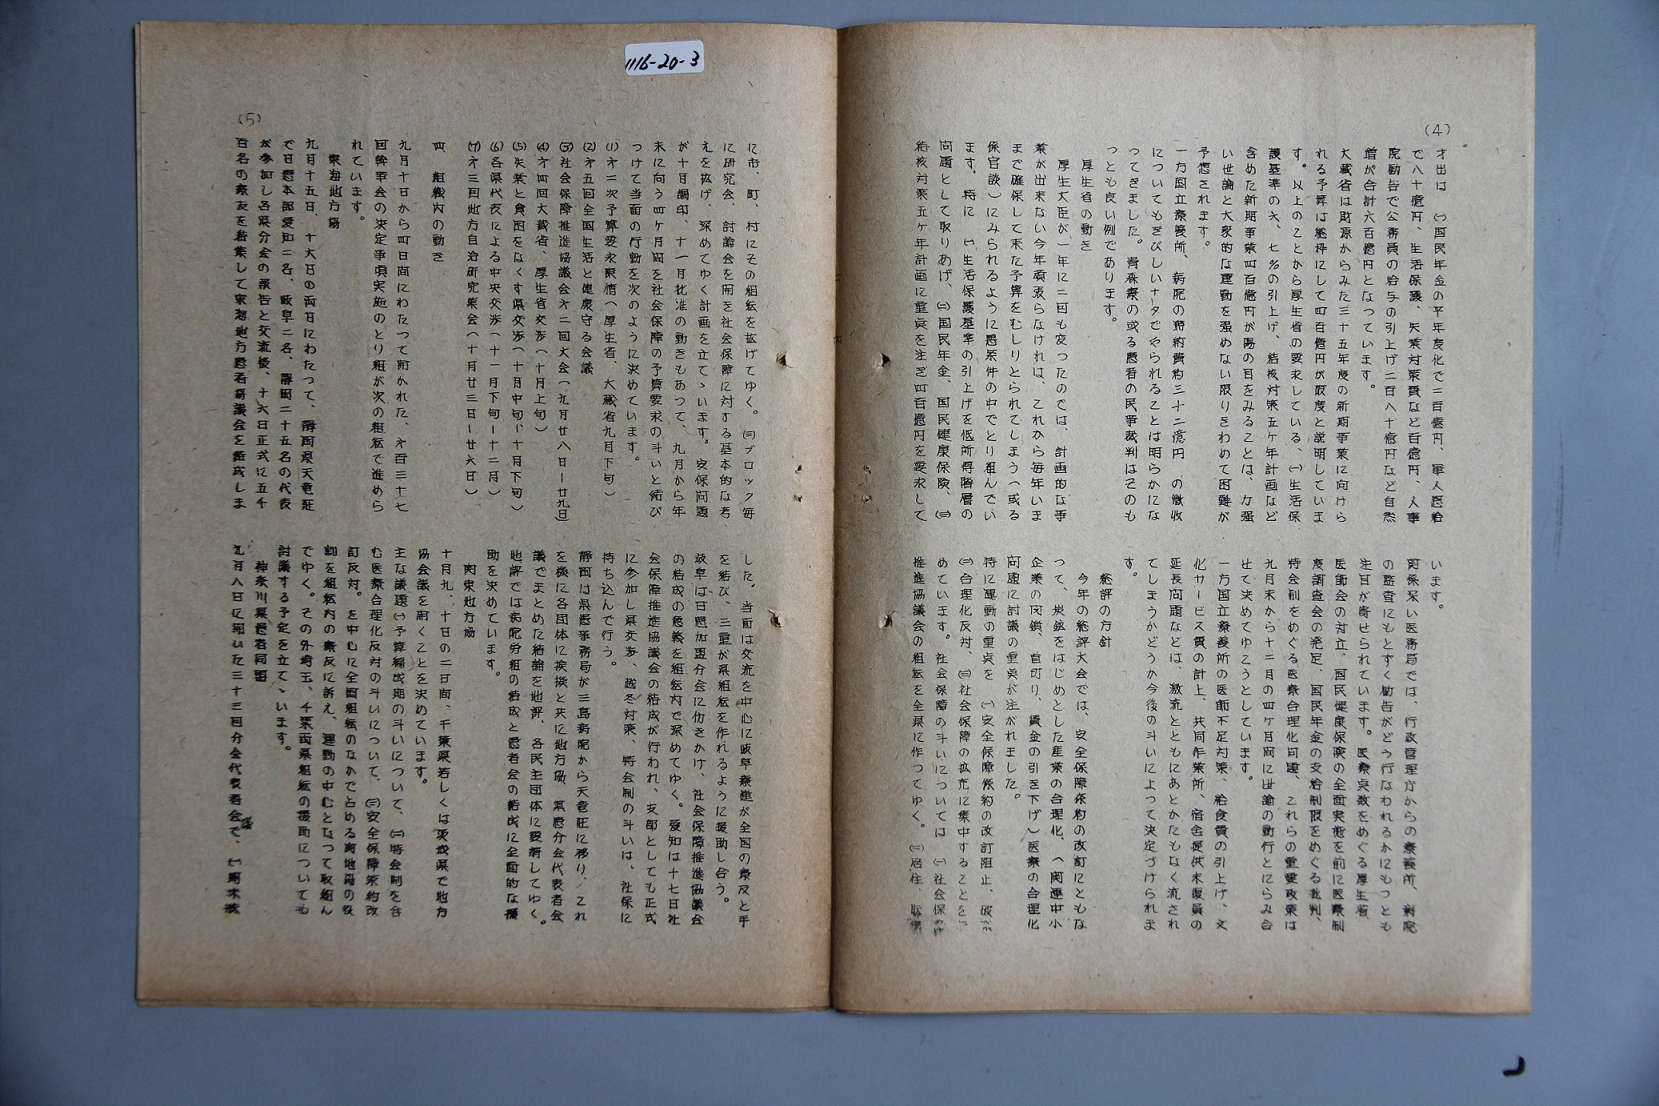 (4)
才出は ㈠国民年金の平年度化で二百億円、軍人恩給
で八十億円、生活保護、失業対策費など百億円、人事
院勧告で公務員の給与の引上げ二百八十億円など自然
増が合計六百億円となつています。
大蔵省は財源からみた三十五年度の新期事業に向けら
れる予算は総枠にして四百億円が限度と説明していま
す。以上のことから厚生省の要求している、㈠生活保
護基準の大、七％の引上げ、結核対策五ケ年計画など
含めた新期事業四百億円が陽の目をみることは、力強
い世論と大衆的な運動を強めない限りきわめて困難が
予想されます。
一方国立療養所、病院の予約費約三十二億円 の徴収
についてもきびしいナタでやられることは明らかにな
つてきました。青森療の或る患者の民事裁判はそのも
つとも良い例であります。
厚生省の動き
厚生大臣が一年に二回も変つたのでは、計画的な事
業が出来ない今年頑張らなければ、これから毎年いま
まで確保して来た予算をむしりとられてしまう（或る
保官談）にみられるように悪条件の中でとり組んでい
ます。特に ㈠生活保護基準の引上げを低所得階層の
問題として取りあげ、㈡国民年金、国民健康保険、㈢
結核対策五ケ年計画に重点を注ぎ四百億円を要求して
います。
関係深い医務局では、行政管理庁からの療養所、病院
の監査にもとずく勧告がどう行なわれるかにもつとも
注目が寄せられています。医療点数をめぐる厚生省
医師会の対立、国民健康保険の全面実施を前に医療制
度調査会の発足、国民年金の支給制限をめぐる批判、
特会制をめぐる医療合理化問題、これらの重要政策は
九月末から十二月の四ケ月間に世論の動行とにらみ合
せて決めてゆこうとしています。
一方国立療養所の医師不足対策、給食費の引上げ、文
化サービス費の計上、共同作業所、宿舎提供末復員の
延長問題などは、激流とともにあとかたもなく流され
てしまうかどうか今後の斗いによつて決定づけられま
す。
総評の方針
今年の総評大会では、安全保障条約の改訂にともな
つて、炭鉱をはじめとした産業の合理化、（関連中小
企業の閉鎖、首切り、賃金の引き下げ）医療の合理化
問題に討議の重点が注がれました。
特に運動の重点を ㈠安全保障条約の改訂阻止、
㈡合理化反対、㈢社会保障の拡充に集中することをき
めています。社会保障の斗いについては ㈠社会保障
推進協議会の組織を全県に作つてゆく。㈡居住、職場
(5)
に市、町、村にその組織を拡げてゆく。㈢ブロック毎
に研究会、討論会を開き社会保障に対する基本的な考
えを拡げ、深めてゆく計画を立てゝいます。安保問題
が十月調印、十一月批准の動きもあつて、九月から年
末に向う四ケ月間を社会保障の予算要求の斗いと結び
つけて当面の行動を次のように決めています。
(1)才二次予算要求集情（厚生省、大蔵省九月下旬）
(2)才五回全国生活と健康守る会議
(3)社会保障推進協議会才二回大会（九月廿八日ー廿九日）
(4)才四回大蔵省、厚生省交渉（十月上旬）
(5)失業と貧困をなくす県交渉（十月中旬ー十月下旬）
(6)各県代表による中央交渉（十一月下旬ー十二月）
(7)才三回地方自治研究集会（十月廿三日ー廿六日）
四 組織内の動き
九月十日から四日間にわたつて開かれた、才百三十七
回幹事会の決定事項実施のとり組が次の組織で進めら
れています。
東海地方協
九月十五日、十六日の両日にわたつて、静岡県天竜荘
で日患本部愛知二名、岐阜二名、静岡二十五名の代表
が参加し各県分会の報告と交流後、十六日正式に五千
百名の療友を結集して東海地方患者協議会を結成しま
した。当面は交流を中心に岐阜療進が全国の療友と手
を結び、三重が県組織を作れるように援助し合う。
岐阜は日患加盟分会に仂きかけ、社会保障推進協議会
の結成の意義を組織内で深めてゆく。愛知は十七日社
会保障推進協議会の結成が行われ、支部としても正式
に参加し県交渉、越冬対策、特会制の斗いは、社保に
持ち込んで行う。
静岡は県患事務局が三島病院から天竜荘に移り、これ
を機に各団体に挨拶と共に地方協、県患分会代表者会
議でまとめた結論を地評、各民主団体に要請してゆく。
地評では病院労組の結成と患者会の結成に全面的な援
助を決めています。
関東地方協
十月九、十日の二日間、千葉県若しくは茨城県で地方
協会議を開くことを決めています。
主な議題㈠予算編成期の斗いについて、㈡特会制を含
む医療合理化反対の斗いについて、㈢安全保障条約改
訂反対。を中心に全国組織のなかで占める関地協の役
割を組織内の療友に訴え、運動の中心となつて取組ん
でゆく。その外埼玉、千葉両県組織の援助についても
討議する予定を立てゝいます。
神奈川県患者同盟
九月八日に開いた三十三回分会代表者会で、㈠
1116-20-3